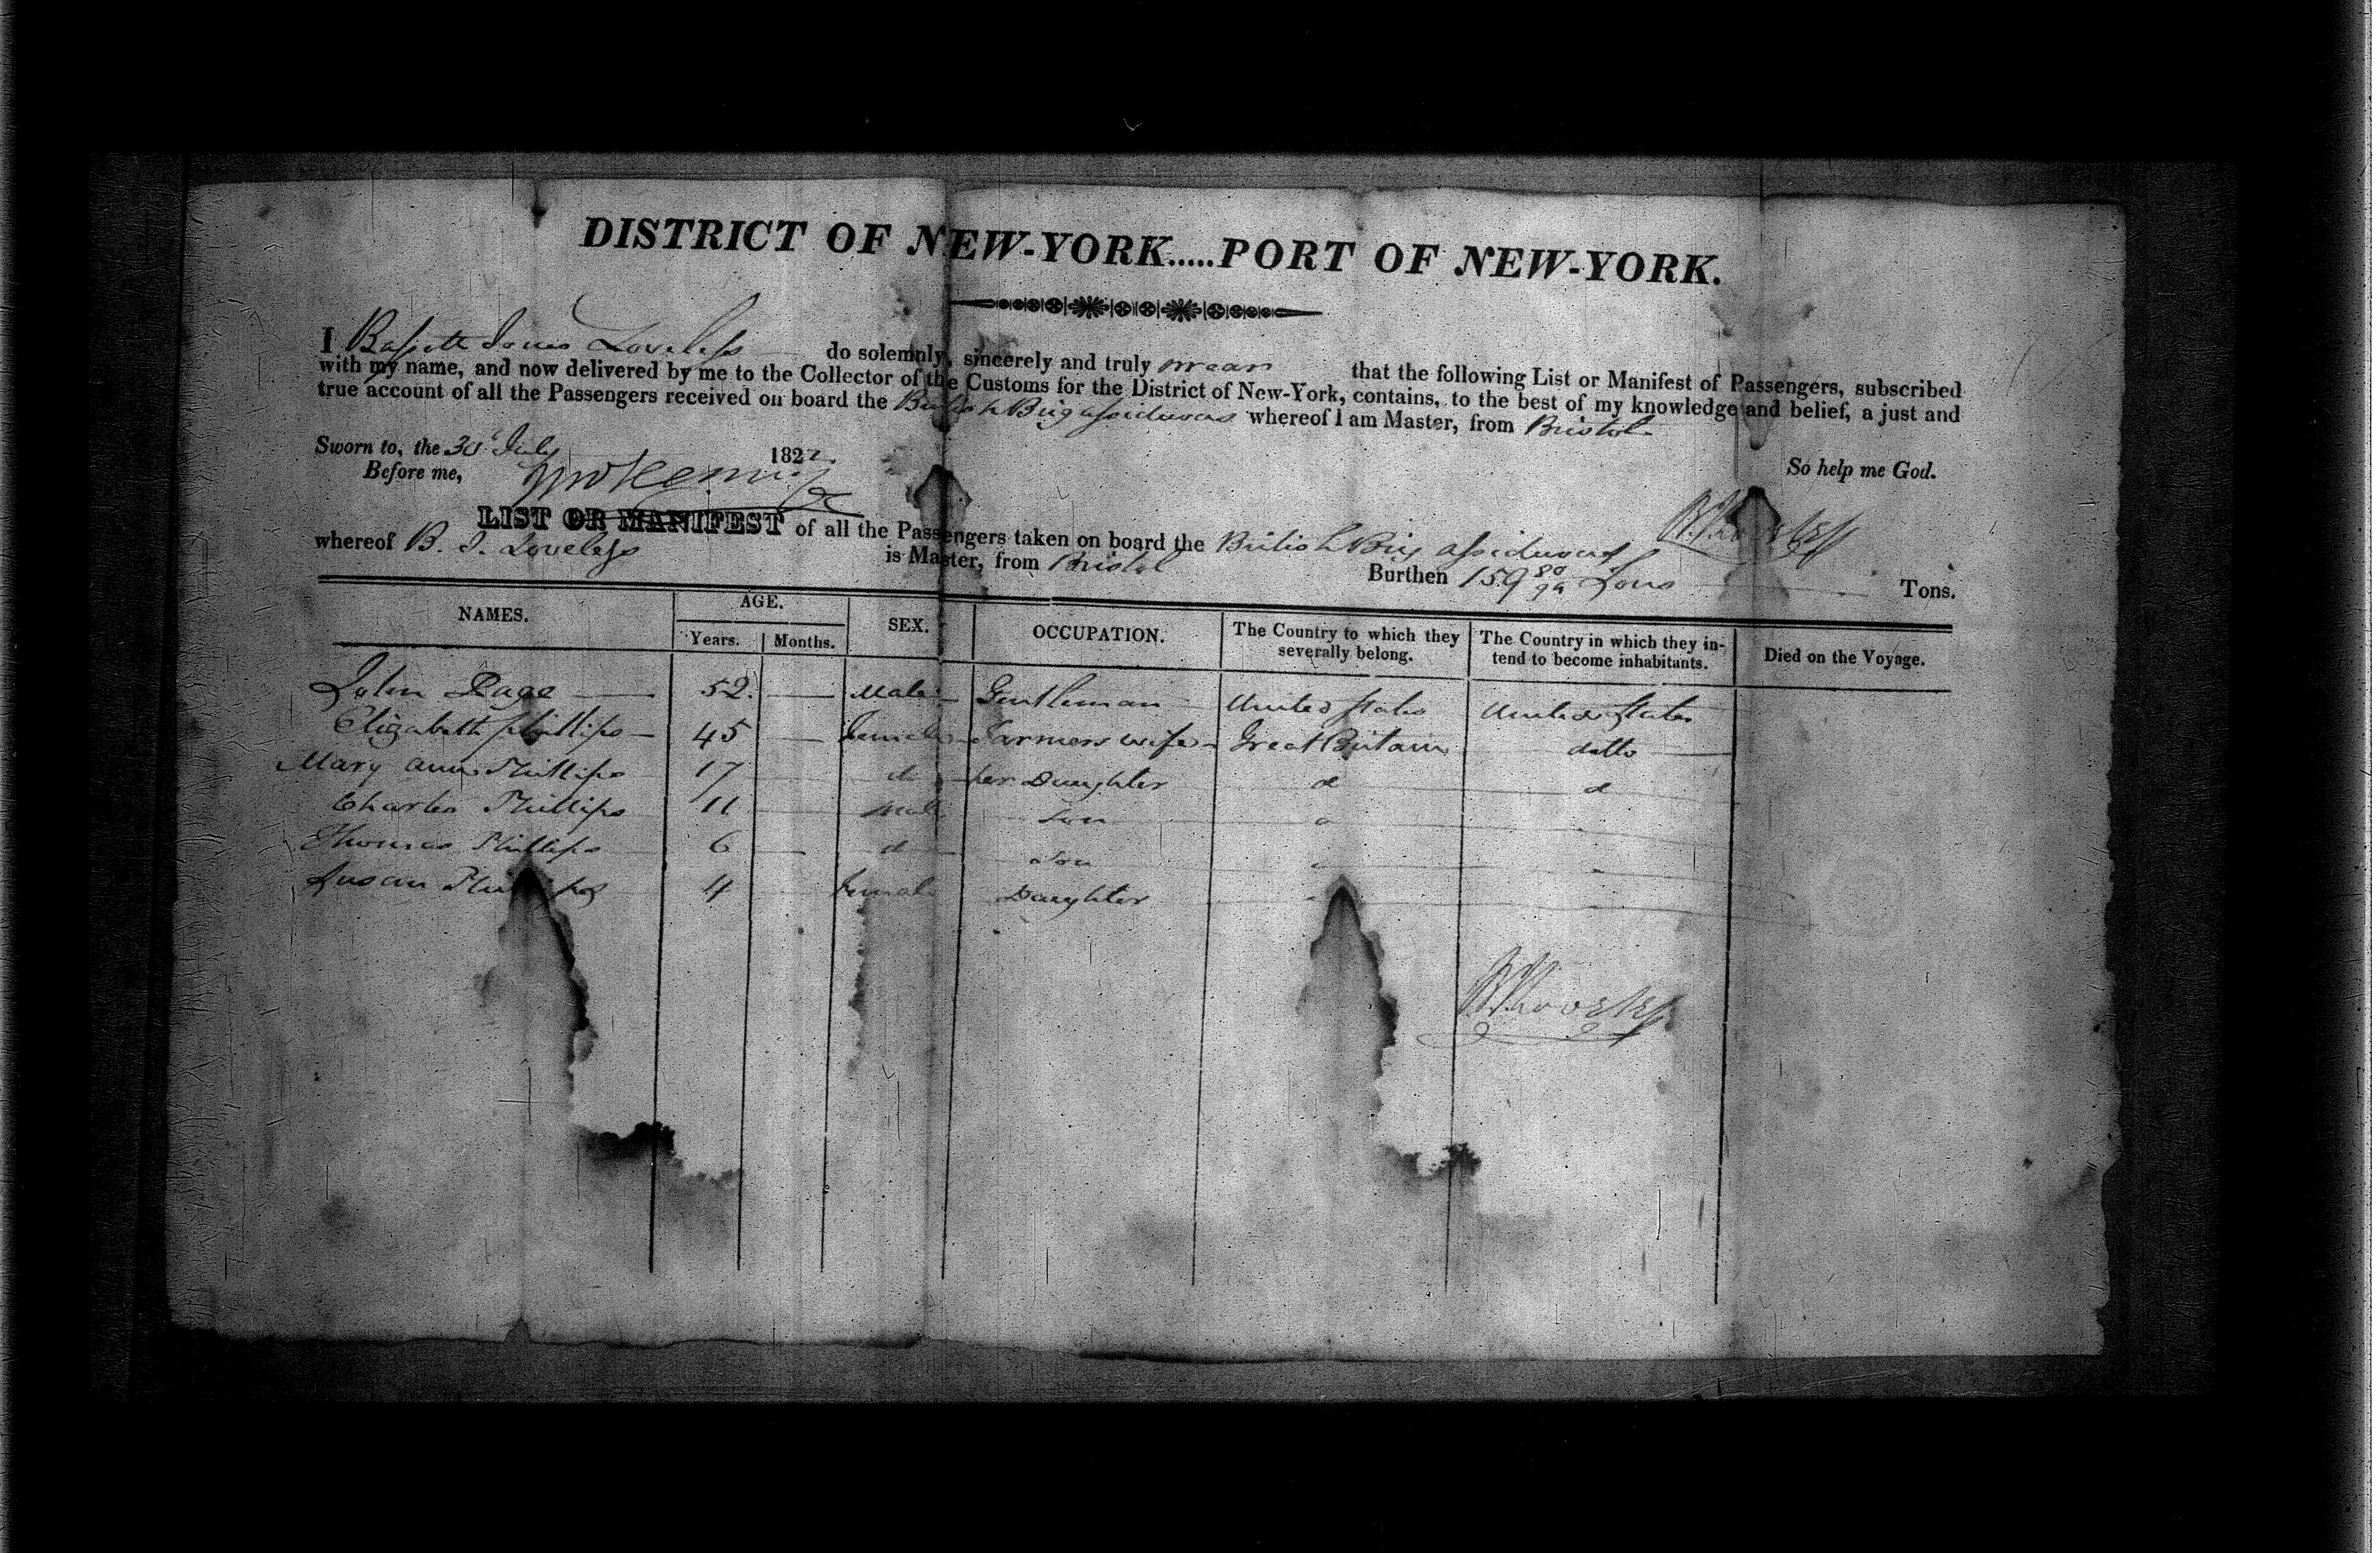 DISTRICT OF NEW-YORK.....PORT OF NEW-YORK.
I Bassett Jones Loveless do solemnly, sincerely and truly swear that the following List or Manifest of Passengers, subscribed
with my name, and now delivered by me to the Collector of the Customs for the District of New-York, contains, to the best of my knowledge and belief, a just and
true account of all the Passengers received on board the British Brig Assiduous whereof I am Master, from Bristol
So help me God.
Sworn to, the July 1822
Before me,
LIST OR MANIFEST of all the Passengers taken on board the British Brig Assiduous
whereof B. J. Loveless is Master, from Bristol Burthen 159 Tons Tons.
NAMES. AGE. SEX. OCCUPATION. The Country to which they severally belong. The Country in which they in-tend to become inhabitants. Died on the Voyage.
Years. Months.
John Page 52 Male Gentleman United States United States
Elizabeth Phillips 45 Female Farmers wife Great Britain ditto
Mary Ann Phillips 17 d her Daughter d d
Charles Phillips 11 Male Son
Thomas Phillips 6 d Son
Susan Phillips 4 Female Daughter
B J Loveless